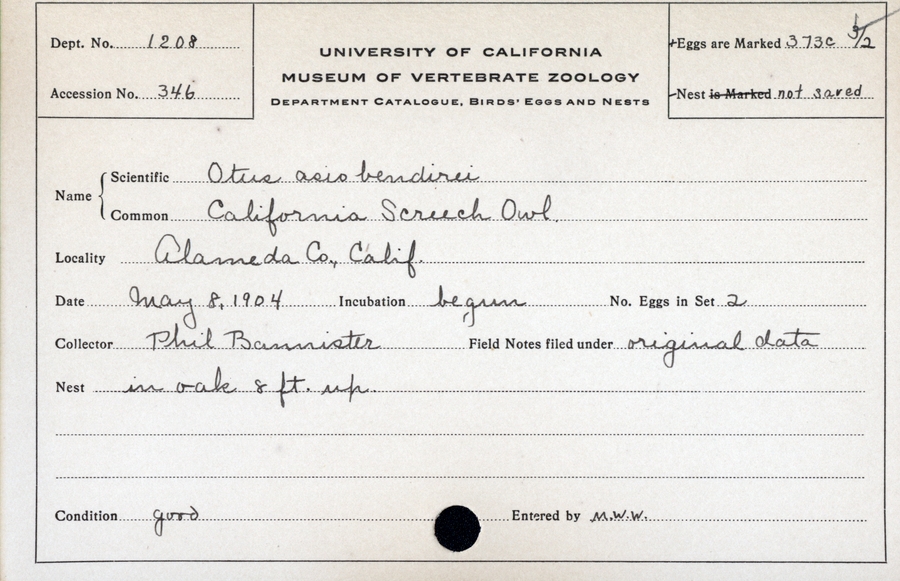 Dept. No. 1208
Accession No. 346
UNIVERSITY OF CALIFORNIA
MUSEUM OF VERTEBRATE ZOOLOGY
DEPARTMENT CATALOGUE, BIRDS' EGGS AND NESTS
Eggs are Marked 373c 3/2
Nest is Marked not saved
Name
Scientific Otus asio bendirei
Common California Screech Owl.
Locality Alameda Co., Calif.
Date May 8, 1904 Incubation begun No. Eggs in Set 2
Collector Phil Bannister Field Notes filed under original data
Nest in oak 8 ft. up.
Condition good Entered by M.W.W.